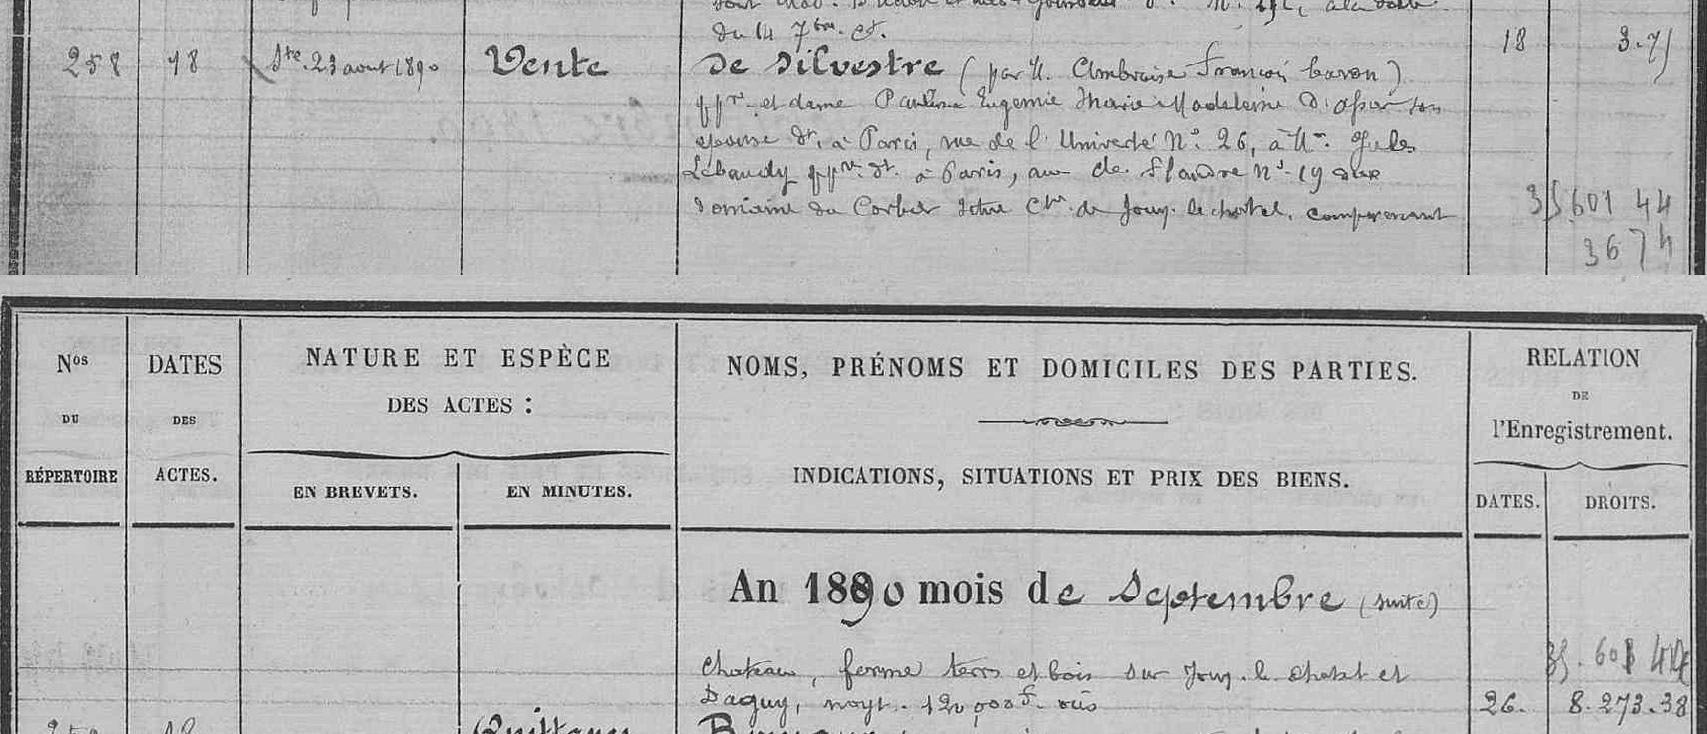 du 14 7bre ct. 18 3.75
258 18 Ste. 23 aout 1890 Vente de Silvestre (par M. Ambroise François baron)
ppre et dame Paulina Eugenie Marie Madeleine son
épouse dt. à Paris, rue de l'Université No. 26, à M. Jules
Lebaudy ppre. dt. à Paris, de Flandre No. 19 du
domaine du Corbier situé Cne. de Jouy-le-chatel, comprenant 35.601 44
3674
Nos DU RÉPERTOIRE
DATES DES ACTES.
NATURE ET ESPÈCE
DES ACTES :
EN BREVETS. EN MINUTES.
NOMS, PRÉNOMS ET DOMICILES DES PARTIES.
INDICATIONS, SITUATIONS ET PRIX DES BIENS.
RELATION
DE
l'Enregistrement.
DATES. DROITS.
An 1890 mois de Septembre (suite)
35.601 44
Chateau, ferme terres et bois sur Jouy-le-chatel et
Dagny, moyt. 120,000f. 26. 8.273.38
259 18 Quittance